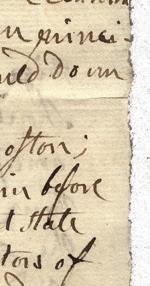 princi-
uld do in
oston;
in before
t state
tors of